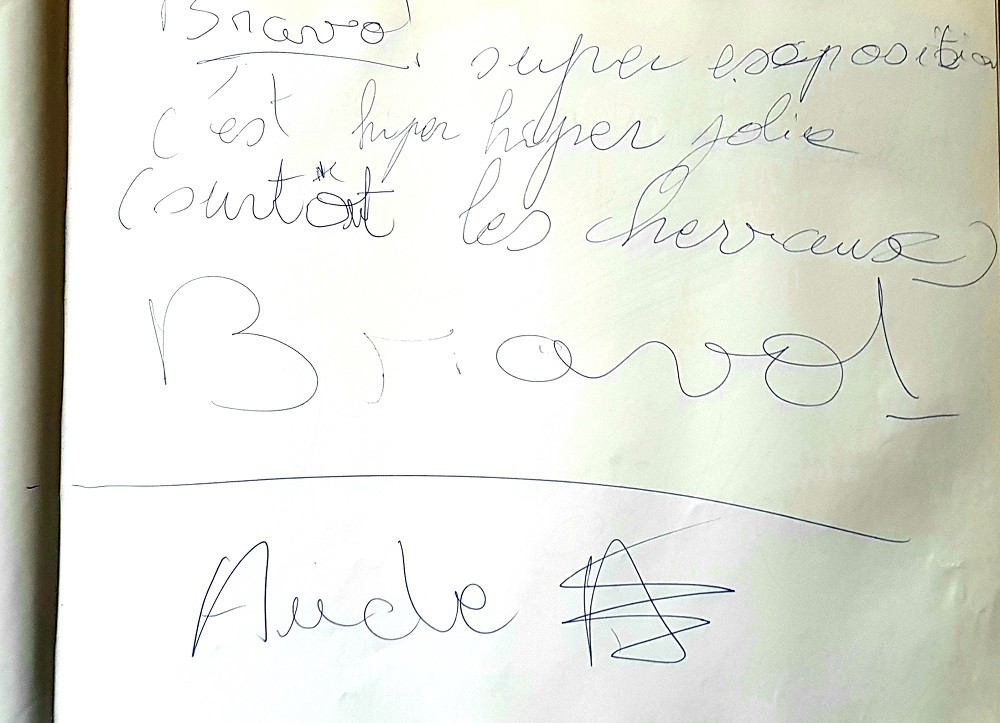 Bravo! super exposition
c'est hyper hyper jolie
(surtout les chevaux)
Bravo!
Aude